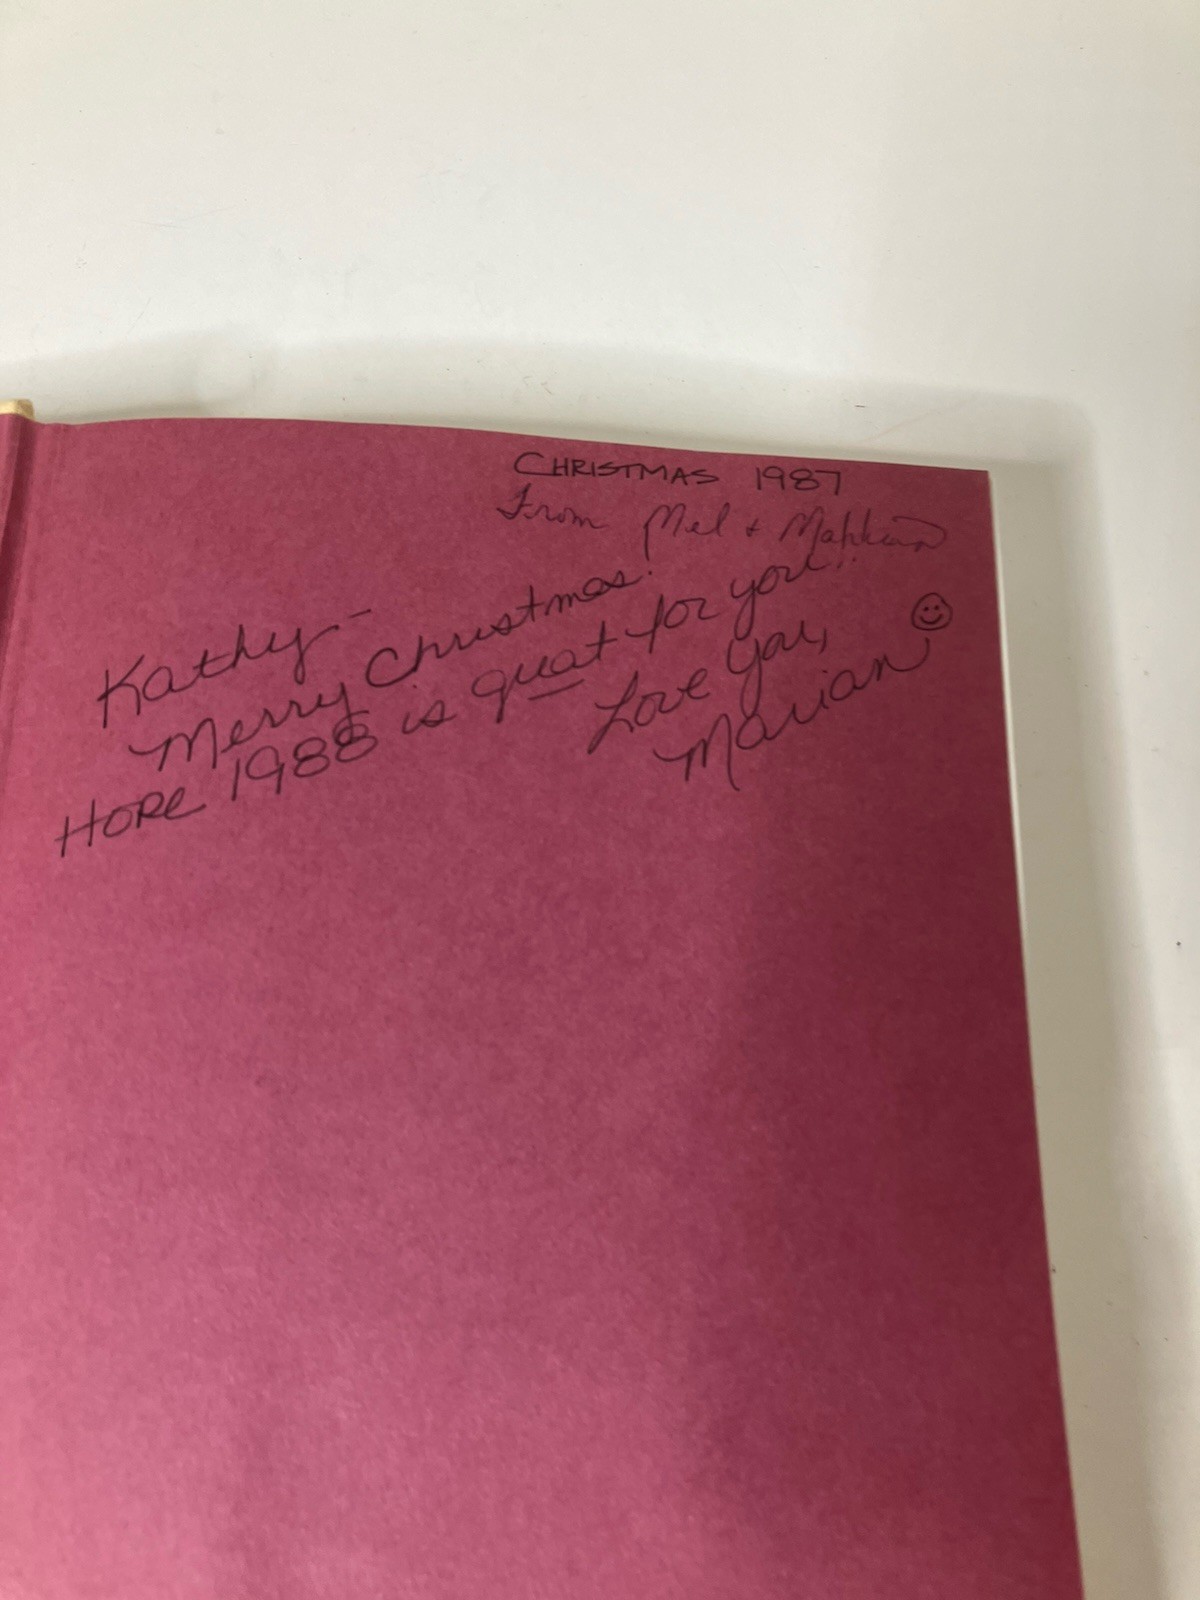 CHRISTMAS 1987
From Mel +
Kathy -
Merry Christmas!
HOPE 1988 is great for you!!
Love You,
Marian